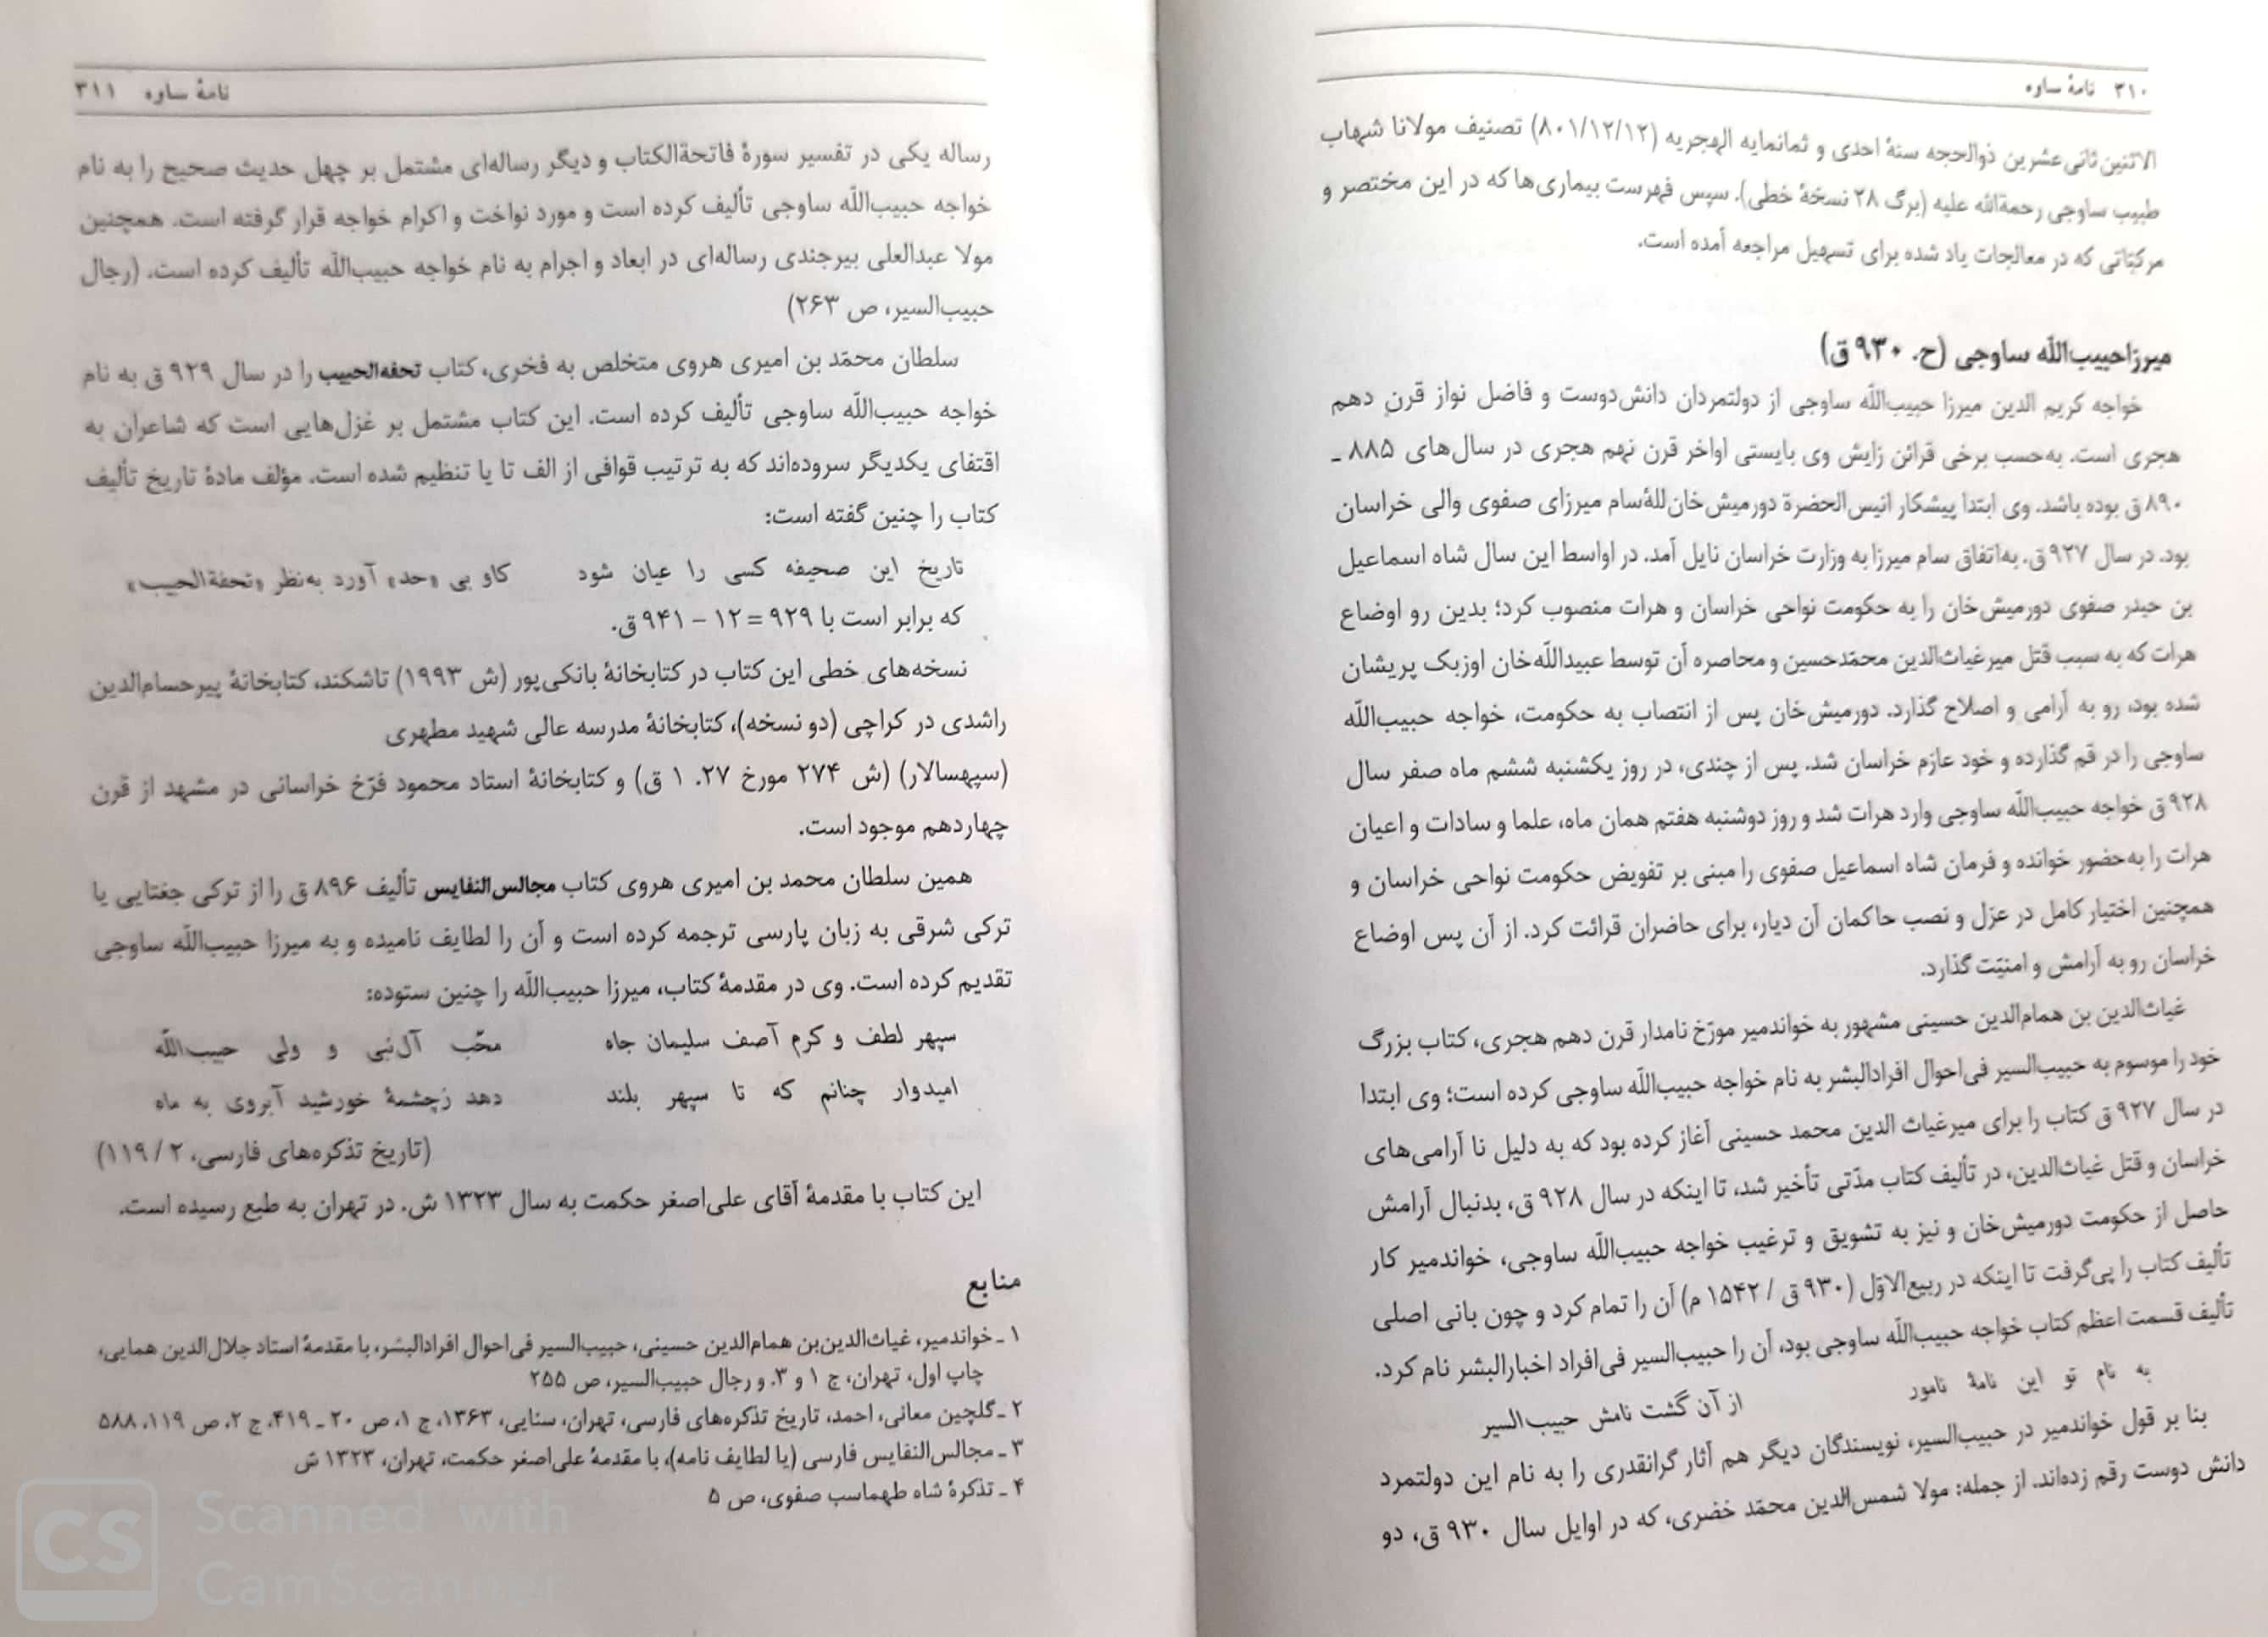 ۳۱۰ نامهٔ ساوه
الاثنین ثانی‌عشرین ذوالحجه سنهٔ احدی و ثمانمایه الهجریه (۸۰۱/۱۲/۱۲) تصنیف مولانا شهاب
طبیب ساوجی رحمةالله علیه (برگ ۲۸ نسخهٔ خطی). سپس فهرست بیماری‌ها که در این مختصر و
مرکبّاتی که در معالجات یاد شده برای تسهیل مراجعه آمده است.
میرزاحبیب‌اللّه ساوجی (ح. ۹۳۰ ق)
خواجه کریم الدین میرزا حبیب‌اللّه ساوجی از دولتمردان دانش‌دوست و فاضل نواز قرن دهم
هجری است. به‌حسب برخی قرائن زایش وی بایستی اواخر قرن نهم هجری در سال‌های ۸۸۵ ـ
۸۹۰ ق بوده باشد. وی ابتدا پیشکار انیس‌الحضرة دورمیش‌خان للهٔ سام میرزای صفوی والی خراسان
بود. در سال ۹۲۷ ق. به‌اتفاق سام میرزا به وزارت خراسان نایل آمد. در اواسط این سال شاه اسماعیل
بن حیدر صفوی دورمیش‌خان را به حکومت نواحی خراسان و هرات منصوب کرد؛ بدین رو اوضاع
هرات که به سبب قتل میرغیاث‌الدین محمّدحسین و محاصره آن توسط عبیداللّه‌خان اوزبک پریشان
شده بود، رو به آرامی و اصلاح گذارد. دورمیش‌خان پس از انتصاب به حکومت، خواجه حبیب‌اللّه
ساوجی را در قم گذارده و خود عازم خراسان شد. پس از چندی، در روز یکشنبه ششم ماه صفر سال
۹۲۸ ق خواجه حبیب‌اللّه ساوجی وارد هرات شد و روز دوشنبه هفتم همان ماه، علما و سادات و اعیان
هرات را به‌حضور خوانده و فرمان شاه اسماعیل صفوی را مبنی بر تفویض حکومت نواحی خراسان و
همچنین اختیار کامل در عزل و نصب حاکمان آن دیار، برای حاضران قرائت کرد. از آن پس اوضاع
خراسان رو به آرامش و امنیّت گذارد.
غیاث‌الدین بن همام‌الدین حسینی مشهور به خواندمیر مورّخ نامدار قرن دهم هجری، کتاب بزرگ
خود را موسوم به حبیب‌السیر فی‌احوال افرادالبشر به نام خواجه حبیب‌اللّه ساوجی کرده است؛ وی ابتدا
در سال ۹۲۷ ق کتاب را برای میرغیاث الدین محمد حسینی آغاز کرده بود که به دلیل نا آرامی‌های
خراسان و قتل غیاث‌الدین، در تألیف کتاب مدّتی تأخیر شد، تا اینکه در سال ۹۲۸ ق، بدنبال آرامش
حاصل از حکومت دورمیش‌خان و نیز به تشویق و ترغیب خواجه حبیب‌اللّه ساوجی، خواندمیر کار
تألیف کتاب را پی‌گرفت تا اینکه در ربیع‌الاوّل (۹۳۰ ق / ۱۵۴۲ م) آن را تمام کرد و چون بانی اصلی
تألیف قسمت اعظم کتاب خواجه حبیب‌اللّه ساوجی بود، آن را حبیب‌السیر فی‌افراد اخبارالبشر نام کرد.
به نام تو این نامهٔ نامور از آن گشت نامش حبیب‌السیر
بنا بر قول خواندمیر در حبیب‌السیر، نویسندگان دیگر هم آثار گرانقدری را به نام این دولتمرد
دانش دوست رقم زده‌اند. از جمله: مولا شمس‌الدین محمّد خضری، که در اوایل سال ۹۳۰ ق، دو
نامهٔ ساوه ۳۱۱
رساله یکی در تفسیر سورهٔ فاتحةالکتاب و دیگر رساله‌ای مشتمل بر چهل حدیث صحیح را به نام
خواجه حبیب‌اللّه ساوجی تألیف کرده است و مورد نواخت و اکرام خواجه قرار گرفته است. همچنین
مولا عبدالعلی بیرجندی رساله‌ای در ابعاد و اجرام به نام خواجه حبیب‌اللّه تألیف کرده است. (رجال
حبیب‌السیر، ص ۲۶۳)
سلطان محمّد بن امیری هروی متخلص به فخری، کتاب تحفه‌الحبیب را در سال ۹۲۹ ق به نام
خواجه حبیب‌اللّه ساوجی تألیف کرده است. این کتاب مشتمل بر غزل‌هایی است که شاعران به
اقتفای یکدیگر سروده‌اند که به ترتیب قوافی از الف تا یا تنظیم شده است. مؤلف مادهٔ تاریخ تألیف
کتاب را چنین گفته است:
تاریخ این صحیفه کسی را عیان شود کاو بی «حد» آورد به‌نظر «تحفةالحبیب»
که برابر است با ۹۲۹ = ۱۲ – ۹۴۱ ق.
نسخه‌های خطی این کتاب در کتابخانهٔ بانکی‌پور (ش ۱۹۹۳) تاشکند، کتابخانهٔ پیرحسام‌الدین
راشدی در کراچی (دو نسخه)، کتابخانهٔ مدرسه عالی شهید مطهری
(سپهسالار) (ش ۲۷۴ مورخ ۲۷. ۱ ق) و کتابخانهٔ استاد محمود فرّخ خراسانی در مشهد از قرن
چهاردهم موجود است.
همین سلطان محمد بن امیری هروی کتاب مجالس‌النفایس تألیف ۸۹۶ ق را از ترکی جغتایی یا
ترکی شرقی به زبان پارسی ترجمه کرده است و آن را لطایف نامیده و به میرزا حبیب‌اللّه ساوجی
تقدیم کرده است. وی در مقدمهٔ کتاب، میرزا حبیب‌اللّه را چنین ستوده:
سپهر لطف و کرم آصف سلیمان جاه محّب آل‌نبی و ولی حبیب‌اللّه
امیدوار چنانم که تا سپهر بلند دهد زچشمهٔ خورشید آبروی به ماه
(تاریخ تذکره‌های فارسی، ۲ / ۱۱۹)
این کتاب با مقدمهٔ آقای علی‌اصغر حکمت به سال ۱۳۲۳ ش. در تهران به طبع رسیده است.
منابع
۱ ـ خواندمیر، غیاث‌الدین‌بن همام‌الدین حسینی، حبیب‌السیر فی‌احوال افرادالبشر، با مقدمهٔ استاد جلال‌الدین همایی،
چاپ اول، تهران، ج ۱ و ۳. و رجال حبیب‌السیر، ص ۲۵۵
۲ ـ گلچین معانی، احمد، تاریخ تذکره‌های فارسی، تهران، سنایی، ۱۳۶۳، ج ۱، ص ۲۰ ـ ۴۱۹، ج ۲، ص ۱۱۹، ۵۸۸
۳ ـ مجالس‌النفایس فارسی (یا لطایف نامه)، با مقدمهٔ علی‌اصغر حکمت، تهران، ۱۳۲۳ ش
۴ ـ تذکرهٔ شاه طهماسب صفوی، ص ۵
CS Scanned with
CamScanner